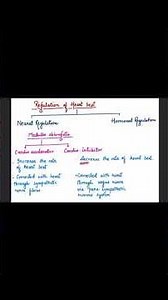 Regulation of Heart beat
Neural Regulation
Hormonal Regulation
Medulla oblongata
Cardio accelerator
Cardio inhibitor
- Increase the rate
of heart beat
- Connected with heart
through sympathetic
nerve fibres
- decrease the rate of heart beat.
- Connected with heart
through vagus nerve
via para sympathetic
nervous system